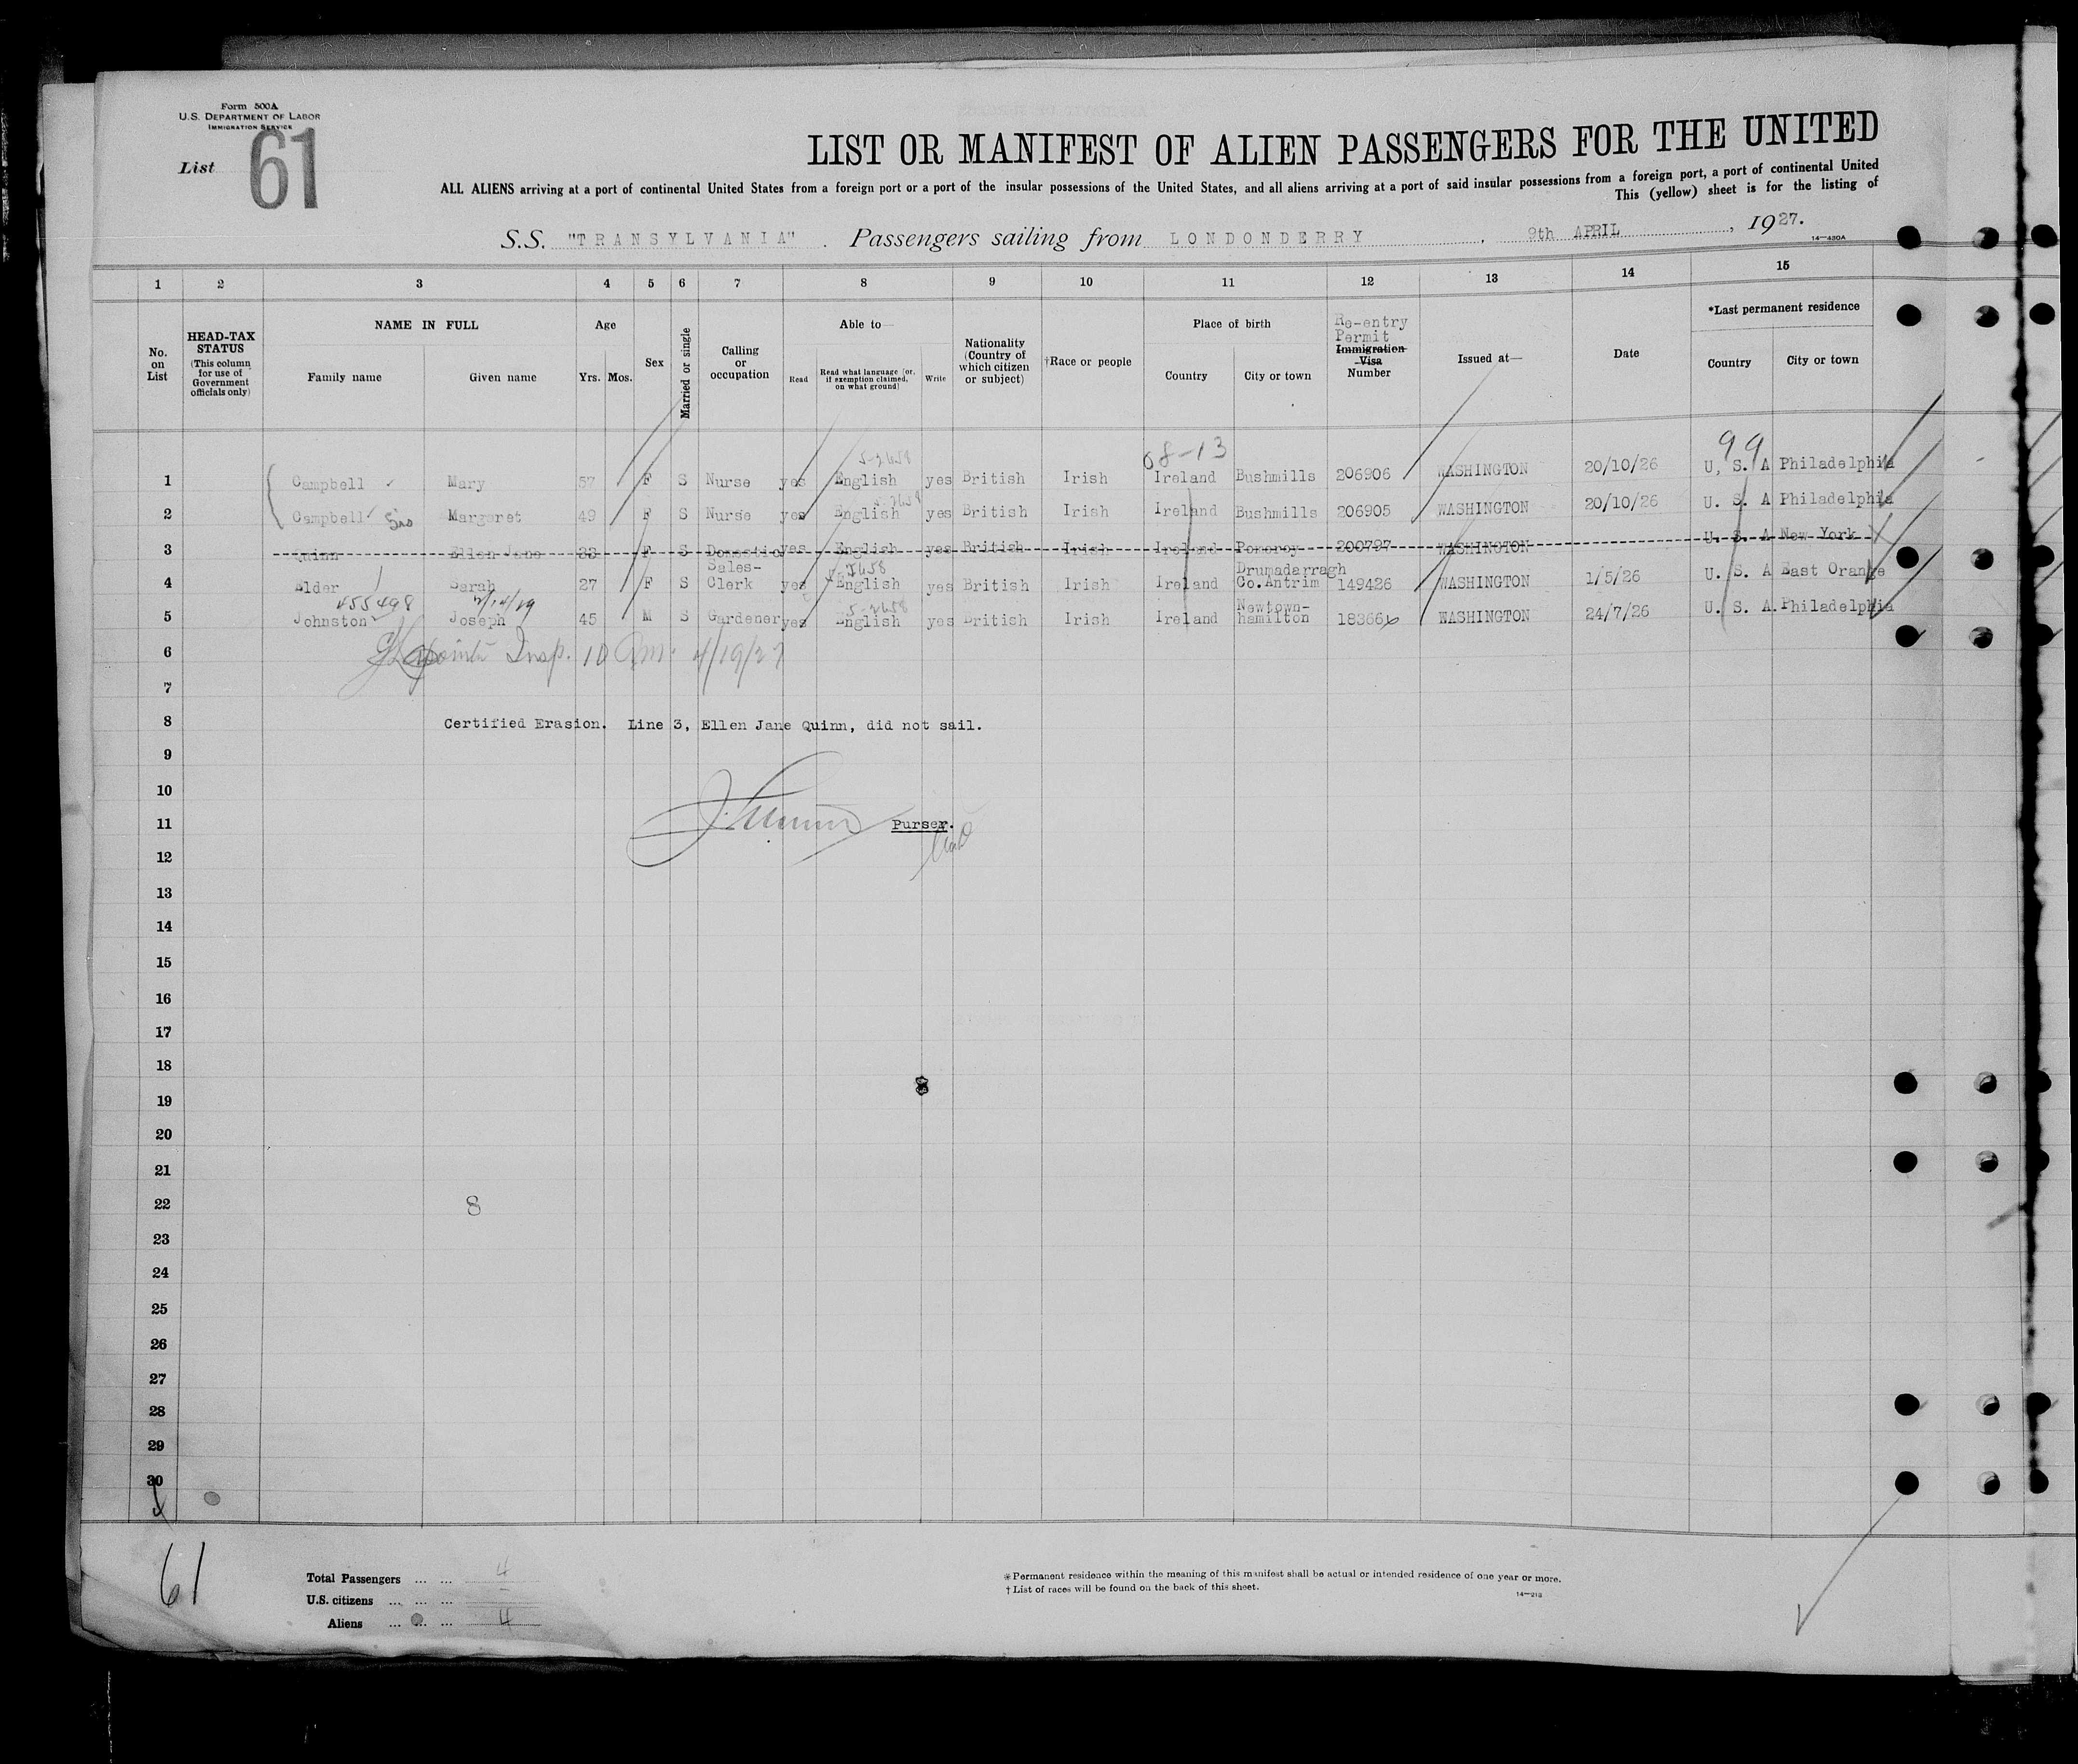 Form 500A
U.S. DEPARTMENT OF LABOR
IMMIGRATION SERVICE
List 61
LIST OR MANIFEST OF ALIEN PASSENGERS FOR THE UNITED
ALL ALIENS arriving at a port of continental United States from a foreign port or a port of the insular possessions of the United States, and all aliens arriving at a port of said insular possessions from a foreign port, a port of continental United
This (yellow) sheet is for the listing of
S.S. "TRANSYLVANIA". Passengers sailing from LONDONDERRY, 9th APRIL, 1927.
14—430A
1 2 3 4 5 6 7 8 9 10 11 12 13 14 15
No. on List
HEAD-TAX STATUS (This column for use of Government officials only)
NAME IN FULL
Family name Given name
Age
Yrs. Mos.
Sex
Married or single
Calling or occupation
Able to—
Read Read what language (or, if exemption claimed, on what ground) Write
Nationality (Country of which citizen or subject)
†Race or people
Place of birth
Country City or town
Re-entry Permit
Immigration Visa Number
Issued at—
Date
*Last permanent residence
Country City or town
5-2658 08-13 99
1 Campbell Mary 57 F S Nurse yes English yes British Irish Ireland Bushmills 206906 WASHINGTON 20/10/26 U. S. A Philadelphia
2 Campbell Sis Margaret 49 F S Nurse yes English yes British Irish Ireland Bushmills 206905 WASHINGTON 20/10/26 U. S. A Philadelphia
3 Quinn Ellen Jane 33 F S Domestic yes English yes British Irish Ireland Pomeroy 200797 WASHINGTON U. S. A New York
4 Elder Sarah 27 F S Sales-Clerk yes English yes British Irish Ireland Drumadarragh Co.Antrim 149426 WASHINGTON 1/5/26 U. S. A East Orange
455498 5-2658
5 Johnston Joseph 45 M S Gardener yes English yes British Irish Ireland Newtown-hamilton 18366 WASHINGTON 24/7/26 U. S. A. Philadelphia
6 Insp. 10 am. 4/19/27
7
8 Certified Erasion. Line 3, Ellen Jane Quinn, did not sail.
9
10
11 Purser.
12
13
14
15
16
17
18
19
20
21
22 8
23
24
25
26
27
28
29
30
61
Total Passengers ... ... 4
U.S. citizens ... ... –
Aliens ... ... ... 4
*Permanent residence within the meaning of this manifest shall be actual or intended residence of one year or more.
†List of races will be found on the back of this sheet.
14—213